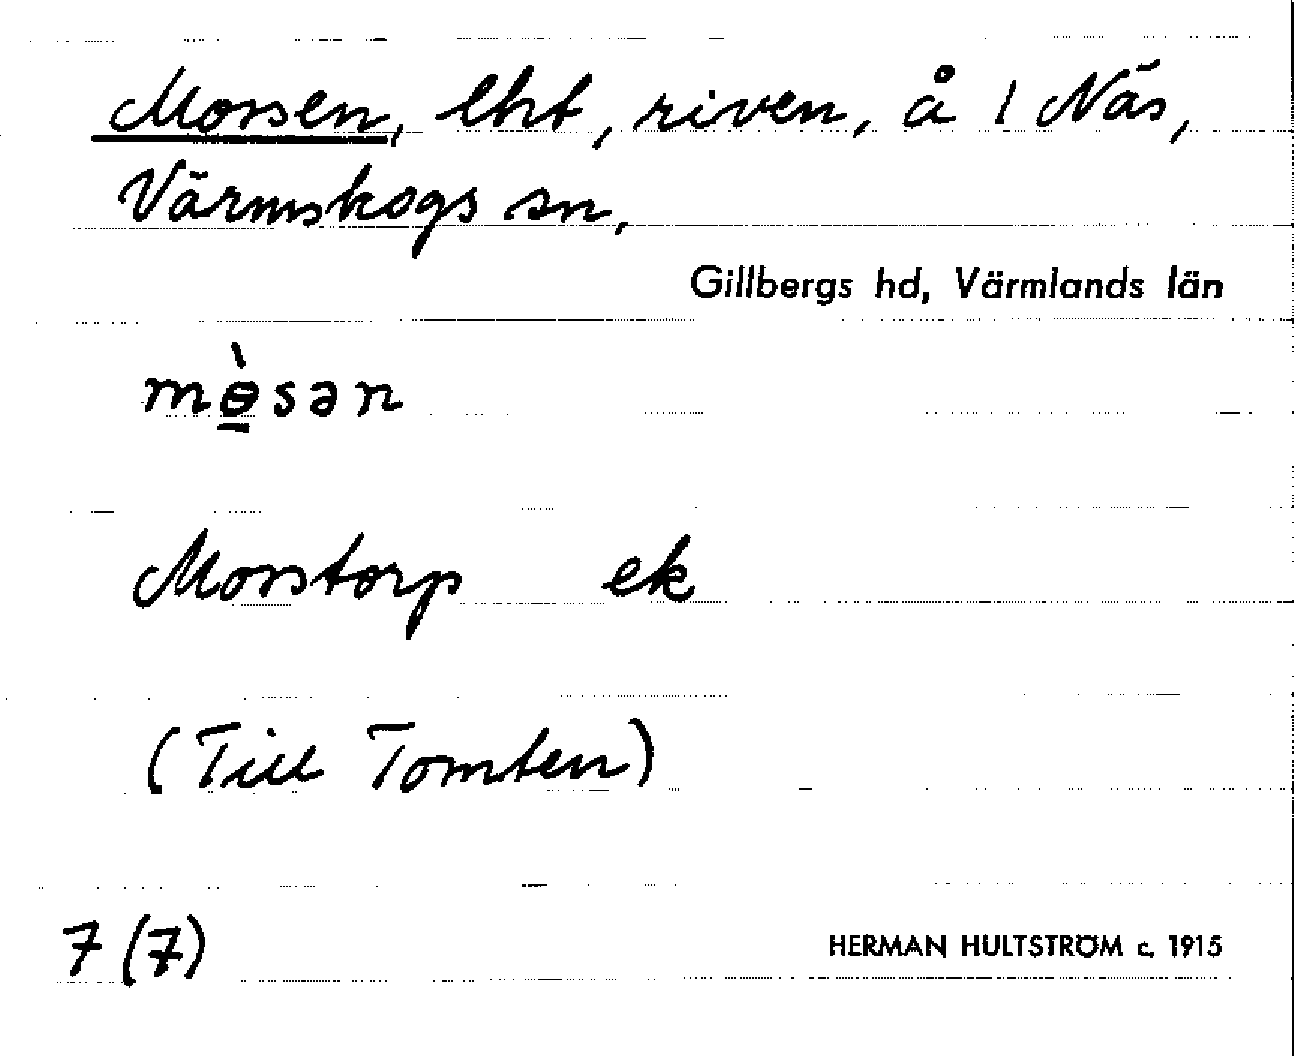 Morsen, lht, riven, å 1 Näs,
Värmskogs sn,
Gillbergs hd, Värmlands län
mɵ̠̀sən
Morstorp ek
(Till Tomten)
7 (7)
HERMAN HULTSTRÖM c. 1915